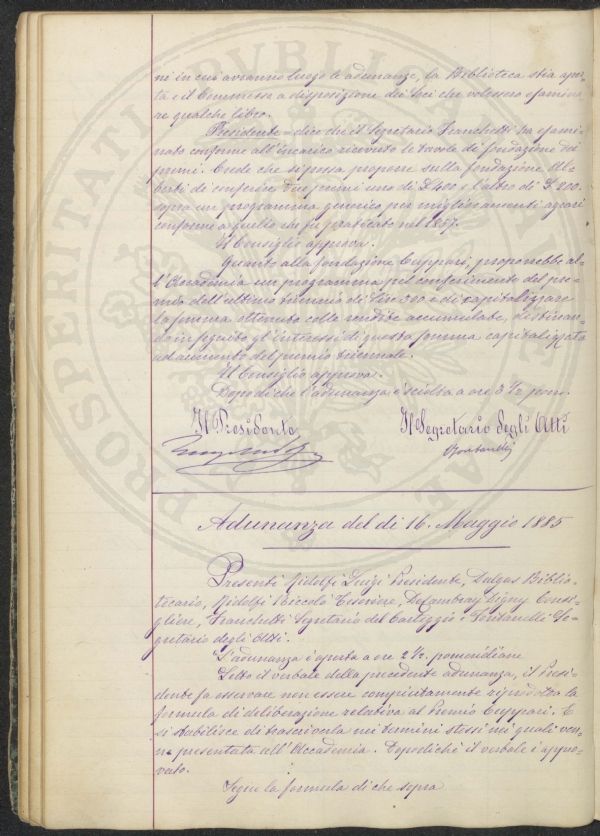 ni in cui avranno luogo le adunanze, la Biblioteca stia aper-
ta e il Commesso a disposizione dei Soci che volessero esamina
re qualche libro.
Presidente = dice che il Segretario Franchetti ha esami-
nato conforme all'incarico ricevuto le tavole di fondazione dei
premi. Crede che si possa proporre sulla fondazione Al-
berti di conferire due premi uno di £ 400 e l'altro di £ 200.
sopra un programma generico per miglioramenti agrari
conforme a quello che fu praticato nel 1857.
Il Consiglio approva.
Quanto alla fondazione Cuppari, proporrebbe al-
l'Accademia un programma pel conferimento del pre-
mio dell'ultimo triennio di Lire 300 e di capitalizzare
la somma ottenuta colle rendite accumulate, destinan-
do in seguito gl'interessi di questa somma capitalizzata
ad aumento del premio triennale.
Il Consiglio approva.
Dopo di che l'adunanza è sciolta a ore 3 ½ pom.
Il Presidente
Il Segretario degli Atti
Fontanelli
Adunanza del di 16. Maggio 1885
Presenti Ridolfi Luigi Presidente, Dalgas Biblio-
tecario, Ridolfi Niccolò Tesoriere, Decambray Digny Consi-
gliere, Franchetti Segretario del Carteggio e Fontanelli Se-
gretario degli Atti.
L'adunanza è aperta a ore 2 ½. pomeridiane
Letto il verbale della precedente adunanza, il Presi-
dente fa osservare non essere compiutamente riprodotta la
formula di deliberazione relativa al Premio Cuppari. E
si stabilisce di trascriverla nei termini stessi nei quali ven-
ne presentata all'Accademia. Dopodichè il verbale è appro-
vato.
Segue la formula di che sopra
PROSPERITATI PVBLICAE